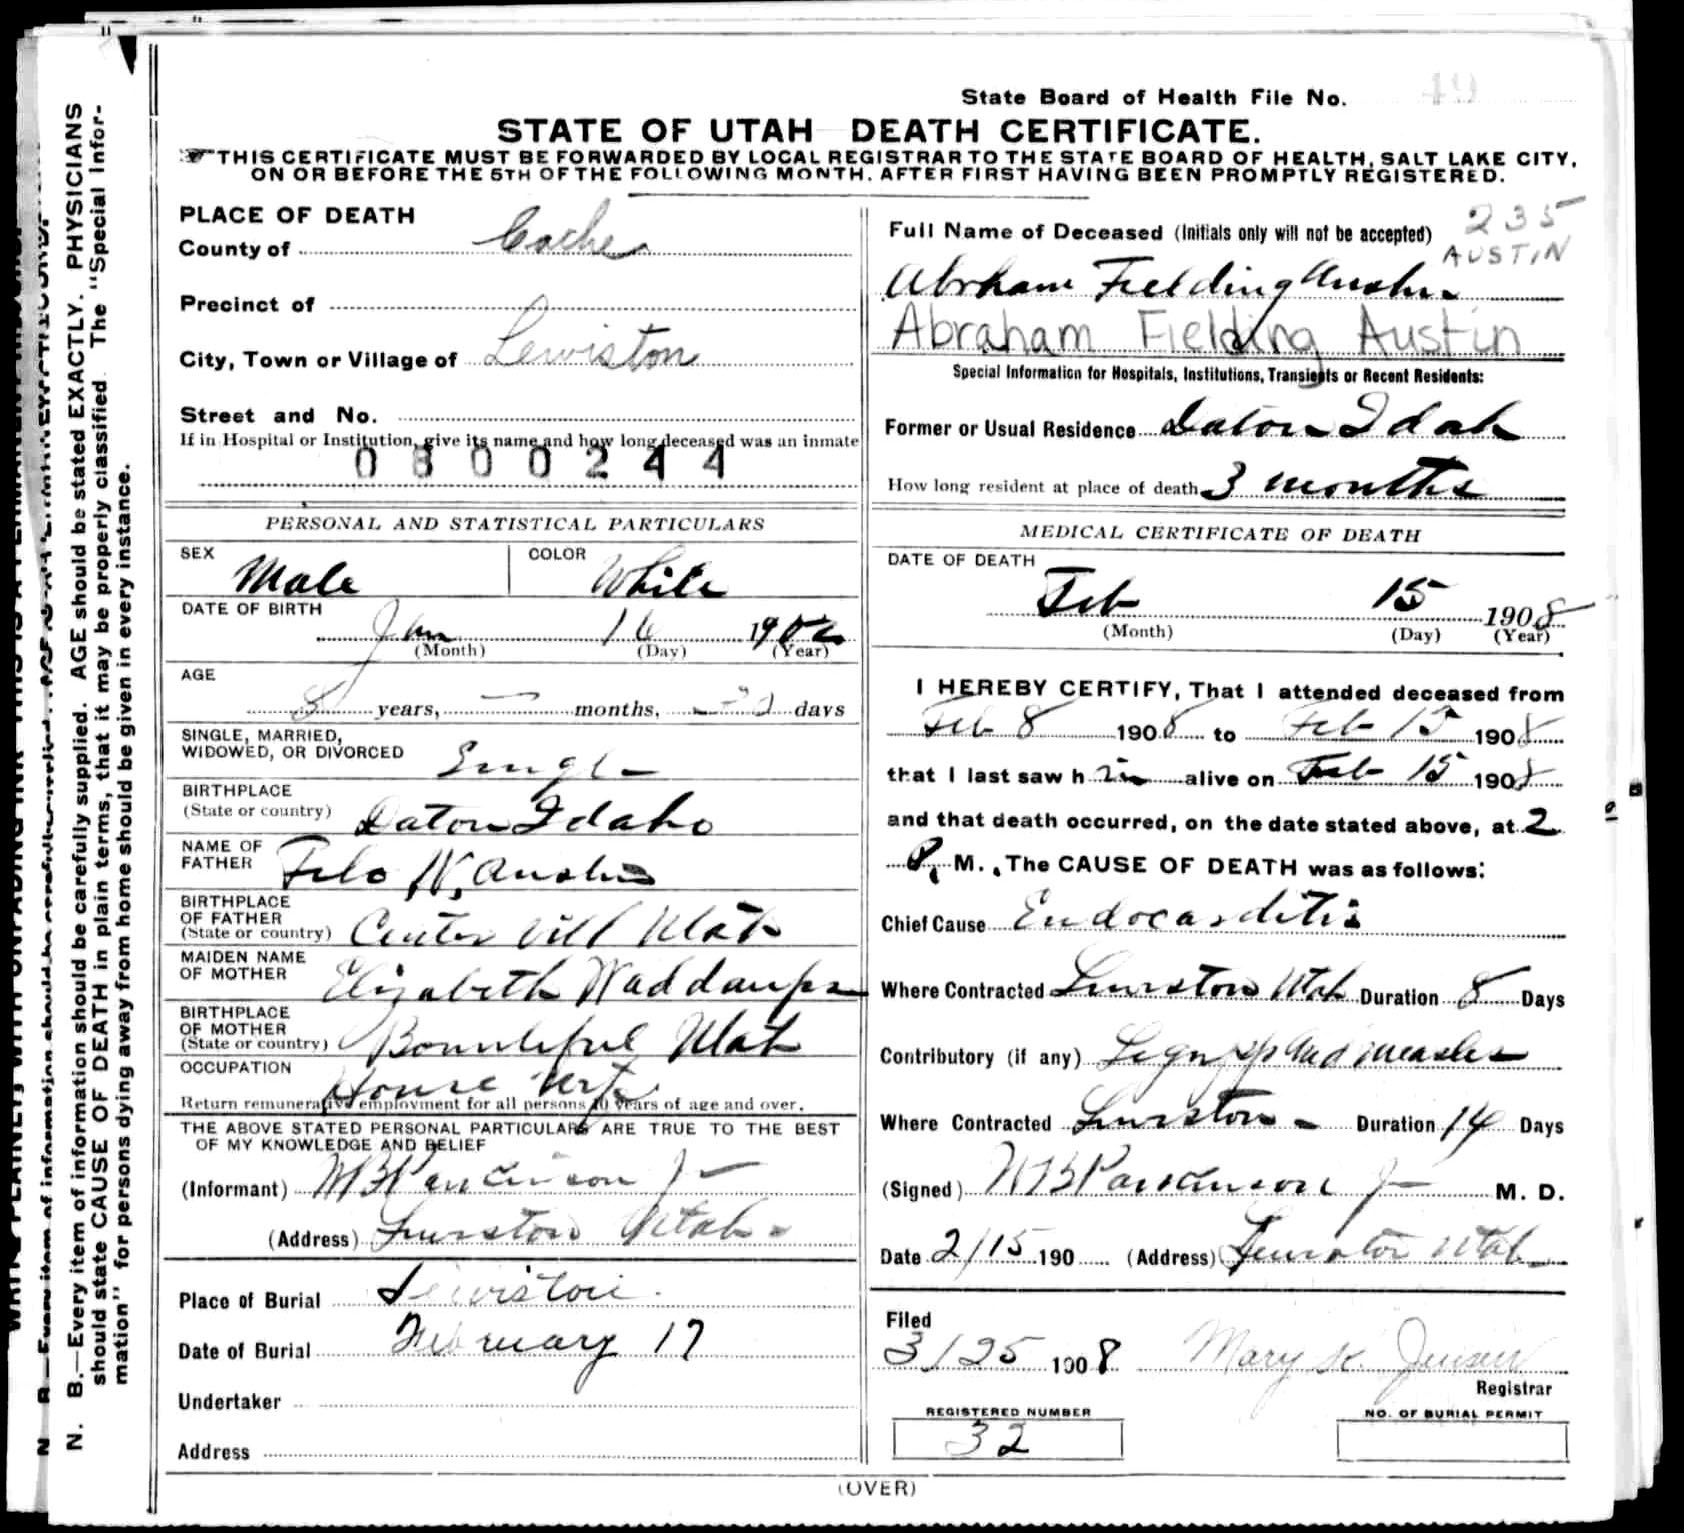 State Board of Health File No. 49
STATE OF UTAH DEATH CERTIFICATE.
THIS CERTIFICATE MUST BE FORWARDED BY LOCAL REGISTRAR TO THE STATE BOARD OF HEALTH, SALT LAKE CITY,
ON OR BEFORE THE 5TH OF THE FOLLOWING MONTH, AFTER FIRST HAVING BEEN PROMPTLY REGISTERED.
N. B.—Every item of information should be carefully supplied. AGE should be stated EXACTLY. PHYSICIANS
should state CAUSE OF DEATH in plain terms, that it may be properly classified. The "Special Infor-
mation" for persons dying away from home should be given in every instance.
PLACE OF DEATH
County of Cache
Precinct of
City, Town or Village of Lewiston
Street and No.
If in Hospital or Institution, give its name and how long deceased was an inmate
0800244
PERSONAL AND STATISTICAL PARTICULARS
SEX Male COLOR White
DATE OF BIRTH
Jan 16 190
(Month) (Day) (Year)
AGE
8 years, — months, days
SINGLE, MARRIED,
WIDOWED, OR DIVORCED Singl
BIRTHPLACE
(State or country) Daton Idaho
NAME OF
FATHER Filo W. Austin
BIRTHPLACE
OF FATHER
(State or country) Center Vill Utah
MAIDEN NAME
OF MOTHER Elizabeth Waddaups
BIRTHPLACE
OF MOTHER
(State or country) Bountiful Utah
OCCUPATION
House Wife
Return remunerative employment for all persons 10 years of age and over.
THE ABOVE STATED PERSONAL PARTICULARS ARE TRUE TO THE BEST
OF MY KNOWLEDGE AND BELIEF
(Informant) W B Parkinson Jr
(Address) Lewiston Utah
Place of Burial Lewiston
Date of Burial February 17
Undertaker
Address
235
Full Name of Deceased (Initials only will not be accepted)
AUSTIN
Abrham Fielding Austin
Abraham Fielding Austin
Special Information for Hospitals, Institutions, Transients or Recent Residents:
Former or Usual Residence Daton Idah
How long resident at place of death 3 months
MEDICAL CERTIFICATE OF DEATH
DATE OF DEATH
Feb 15 1908
(Month) (Day) (Year)
I HEREBY CERTIFY, That I attended deceased from
Feb 8 1908 to Feb 15 1908
that I last saw him alive on Feb 15 1908
and that death occurred, on the date stated above, at 2
P. M. The CAUSE OF DEATH was as follows:
Chief Cause Endocarditis
Where Contracted Lewiston Utah Duration 8 Days
Contributory (if any) Lagrip and measles
Where Contracted Lewiston Duration 14 Days
(Signed) W B Parkinson Jr M. D.
Date 2/15 190 (Address) Lewiston Utah
Filed
3/25 1908 Mary K. Jensen
Registrar
REGISTERED NUMBER
32
NO. OF BURIAL PERMIT
(OVER)